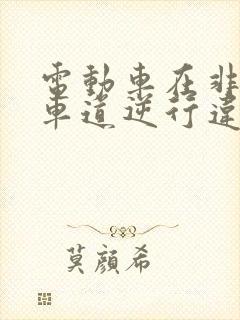 電動車在非
車道逆行違
莫顏希